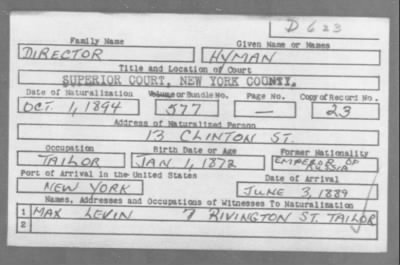 D 623
Family Name Given Name or Names
DIRECTOR HYMAN
Title and Location of Court
SUPERIOR COURT, NEW YORK COUNTY.
Date of Naturalization Volume or Bundle No. Page No. Copy of Record No.
OCT. 1, 1894 577 — 23
Address of Naturalized Person
13 CLINTON ST.
Occupation Birth Date or Age Former Nationality
TAILOR JAN 1, 1872 EMPEROR OF RUSSIA
Port of Arrival in the United States Date of Arrival
NEW YORK JUNE 3, 1889
Names, Addresses and Occupations of Witnesses To Naturalization
1 MAX LEVIN 7 RIVINGTON ST. TAILOR
2